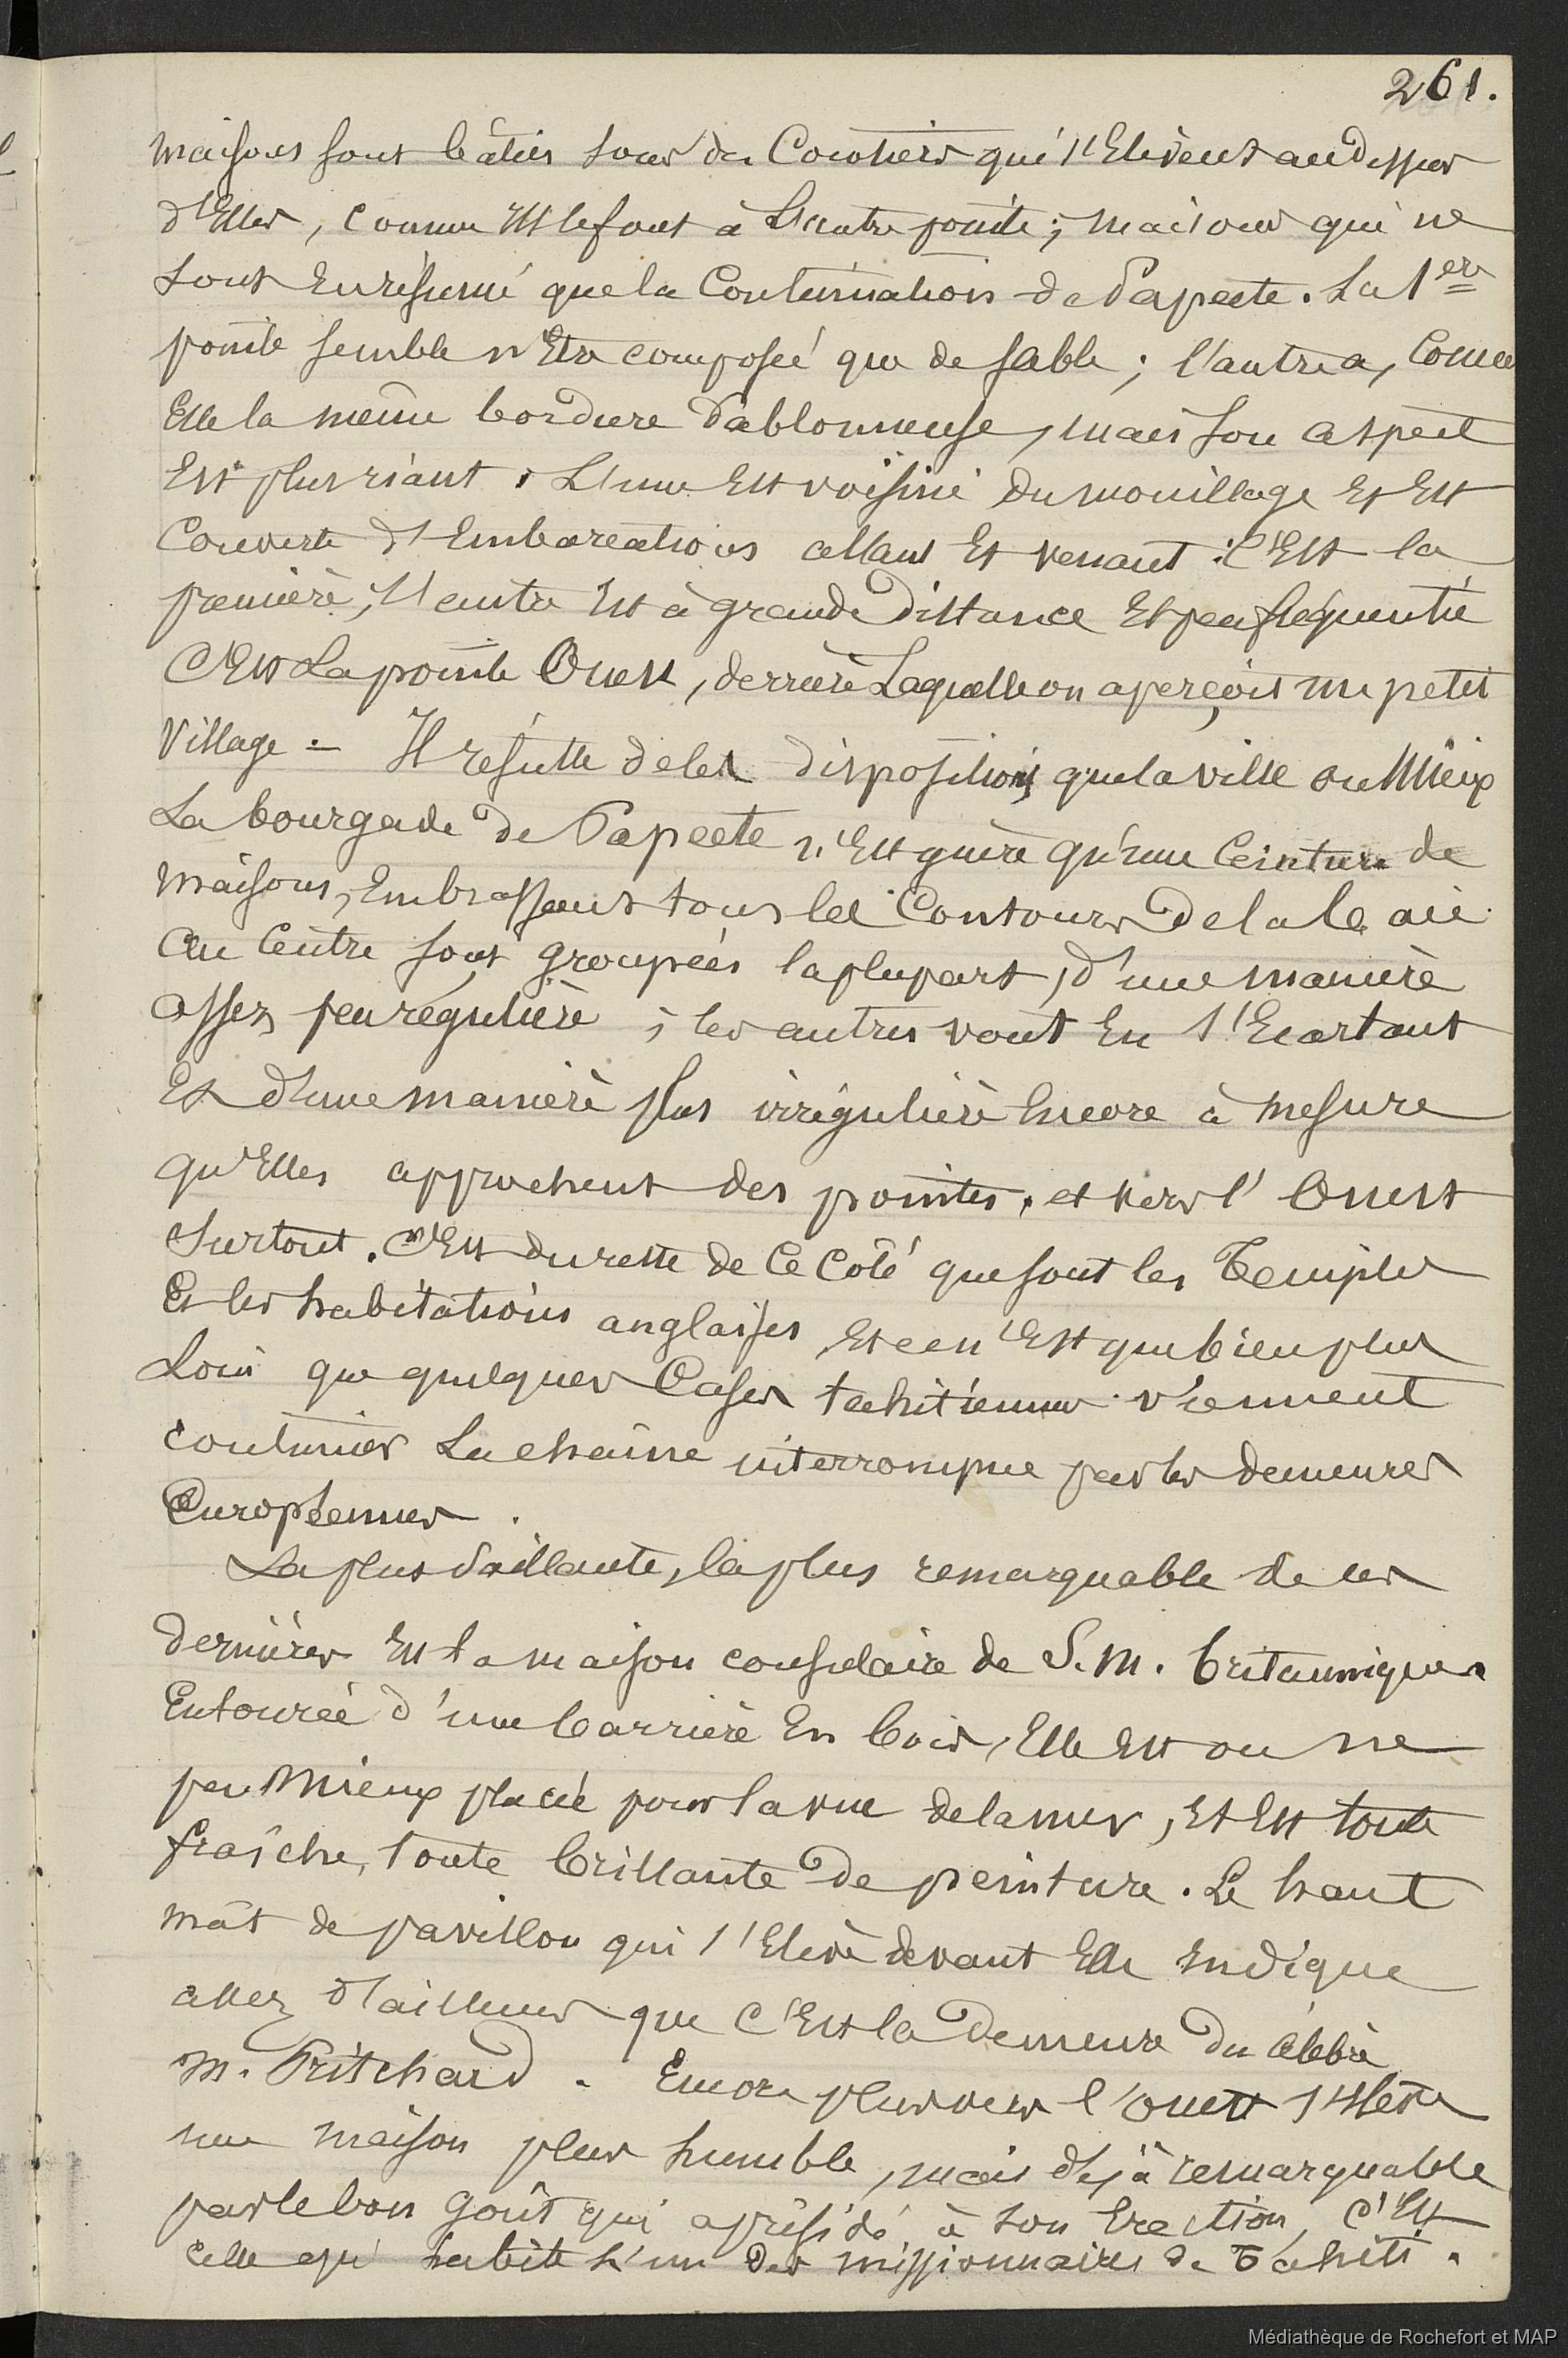 261.
maisons sont bâties sous des Cocotiers qui s'Elèvent audessus
d'Elles, comme Ils le font à L'autre pointe; maisons qui ne
sont En résumé que la Continuation de Papeete. La 1ere
pointe semble n'Etre composée que de sable; l'autre a, Comme
Elle la même bordure sablonneuse, mais son aspect
Est plus riant. L'une Est voisine du mouillage Et Est
Couverte d'Embarcations allant Et venant: C'Est la
première; l'autre Est à grande distance Et peu fréquentée
C'Est La pointe Ouest, derrière Laquelle on aperçoit un petit
Village - Il résulte de ces dispositions que la ville ou Mieux
La bourgade de Papeete n'Est guère qu'une Ceinture de
maisons, Embrassant tous les Contours de la baie
Au Centre sont groupées la plupart, d'une manière
assez peu régulière; les autres vont En s'Ecartant
Et d'une manière plus irrégulière Encore à mesure
qu'Elles approchent des pointes, et vers l'Ouest
Surtout. C'Est du reste de Ce Côté que sont les Temples
Et les habitations anglaises, Et ce n'Est que bien plus
Loin que quelques Cases tahitiennes viennent
continuer La chaîne interrompue par les demeures
Européennes.
La plus saillante, la plus remarquable de ces
dernières Est la maison consulaire de S. M. britannique.
Entourée d'une barrière En bois, Elle Est on ne
peu Mieux placée pour la vue de la mer, Et Est toute
fraîche, toute brillante de peinture. Le haut
mât de pavillon qui s'Elève devant Elle Indique
assez d'ailleurs que C'Est la demeure du célèbre
M. Pritchard. Encore plus vers l'ouest s'Elève
une maison plus humble, mais déjà remarquable
par le bon goût qui a présidé à son Erection, C'Est
celle qu'habite L'un des missionnaires de Tahiti.
Médiathèque de Rochefort et MAP